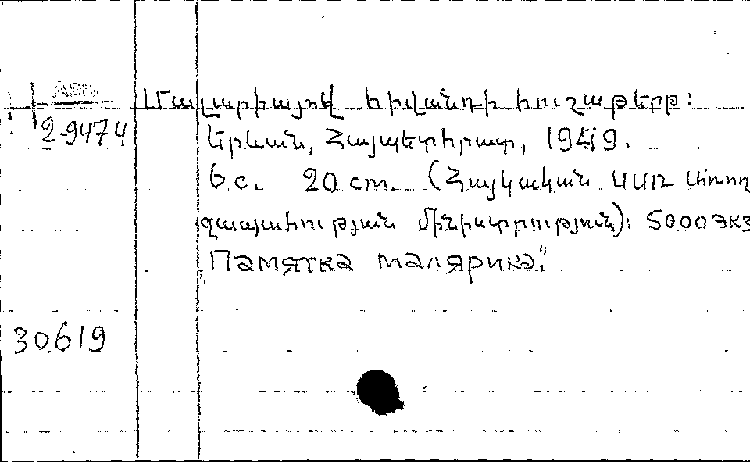 Մալարիայով հիվանդի հուշաթերթ:
2-9474
Երևան, Հայպետհրատ, 1949.
6 с. 20 cm. (Հայկական ՍՍՌ Առող
ջապահության մինիստրություն): 5000 экз
„Памятка малярика“.
30619